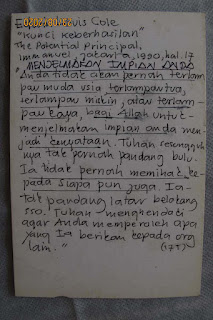 Edwin Louis Cole
"Kunci Keberhasilan"
The Potential Principal,
Immanuel Jakarta, 1990, hal. 17
MENDELMAKAN IMPIAN ANDA
Anda tidak akan pernah terlam
pau muda usia terlampautua,
terlampau miskin, atau terlam-
pau kaya, bagi Allah untuk
menjelmakan impian anda men
jadi kenyataan. Tuhan sesunguh
nya tak pernah pandang bulu.
Ia tidak pernah memihak ke-
pada siapa pun juga. Ia
tak pandang latar belakang
Tuhan menghendaki
agar Anda memperoleh apa
yang Ia berikan kepada org
lain."
(175)